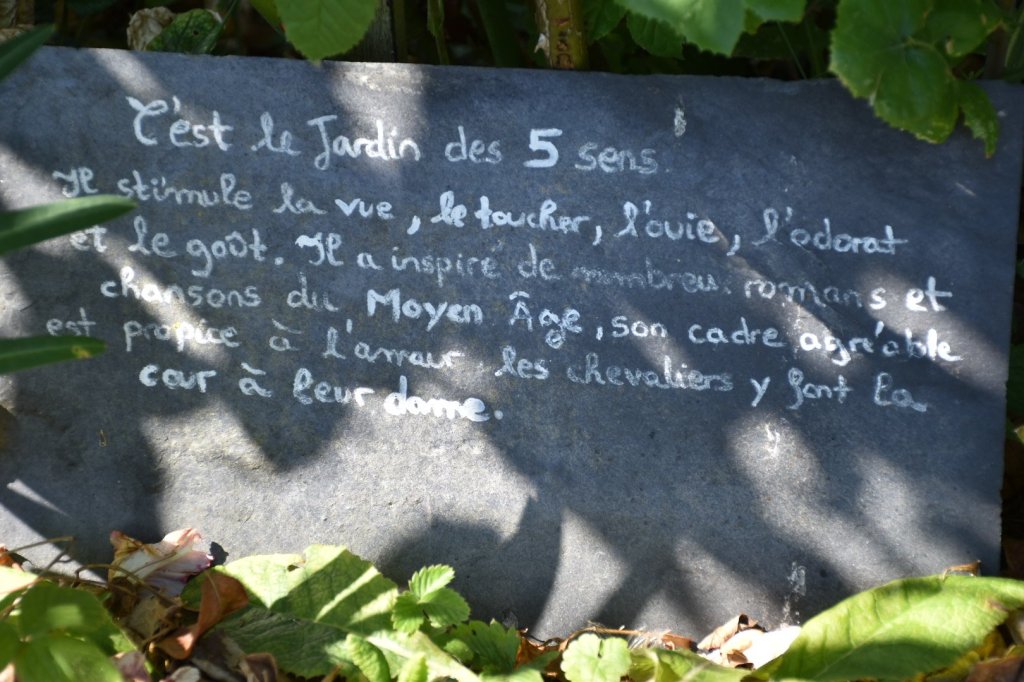 C'est le Jardin des 5 sens
Il stimule la vue, le toucher, l'ouie, l'odorat
et le goût. Il a inspiré de nombreux romans et
chansons du Moyen Âge, son cadre agréable
est propice à l'amour les chevaliers y font la
cour à leur dame.